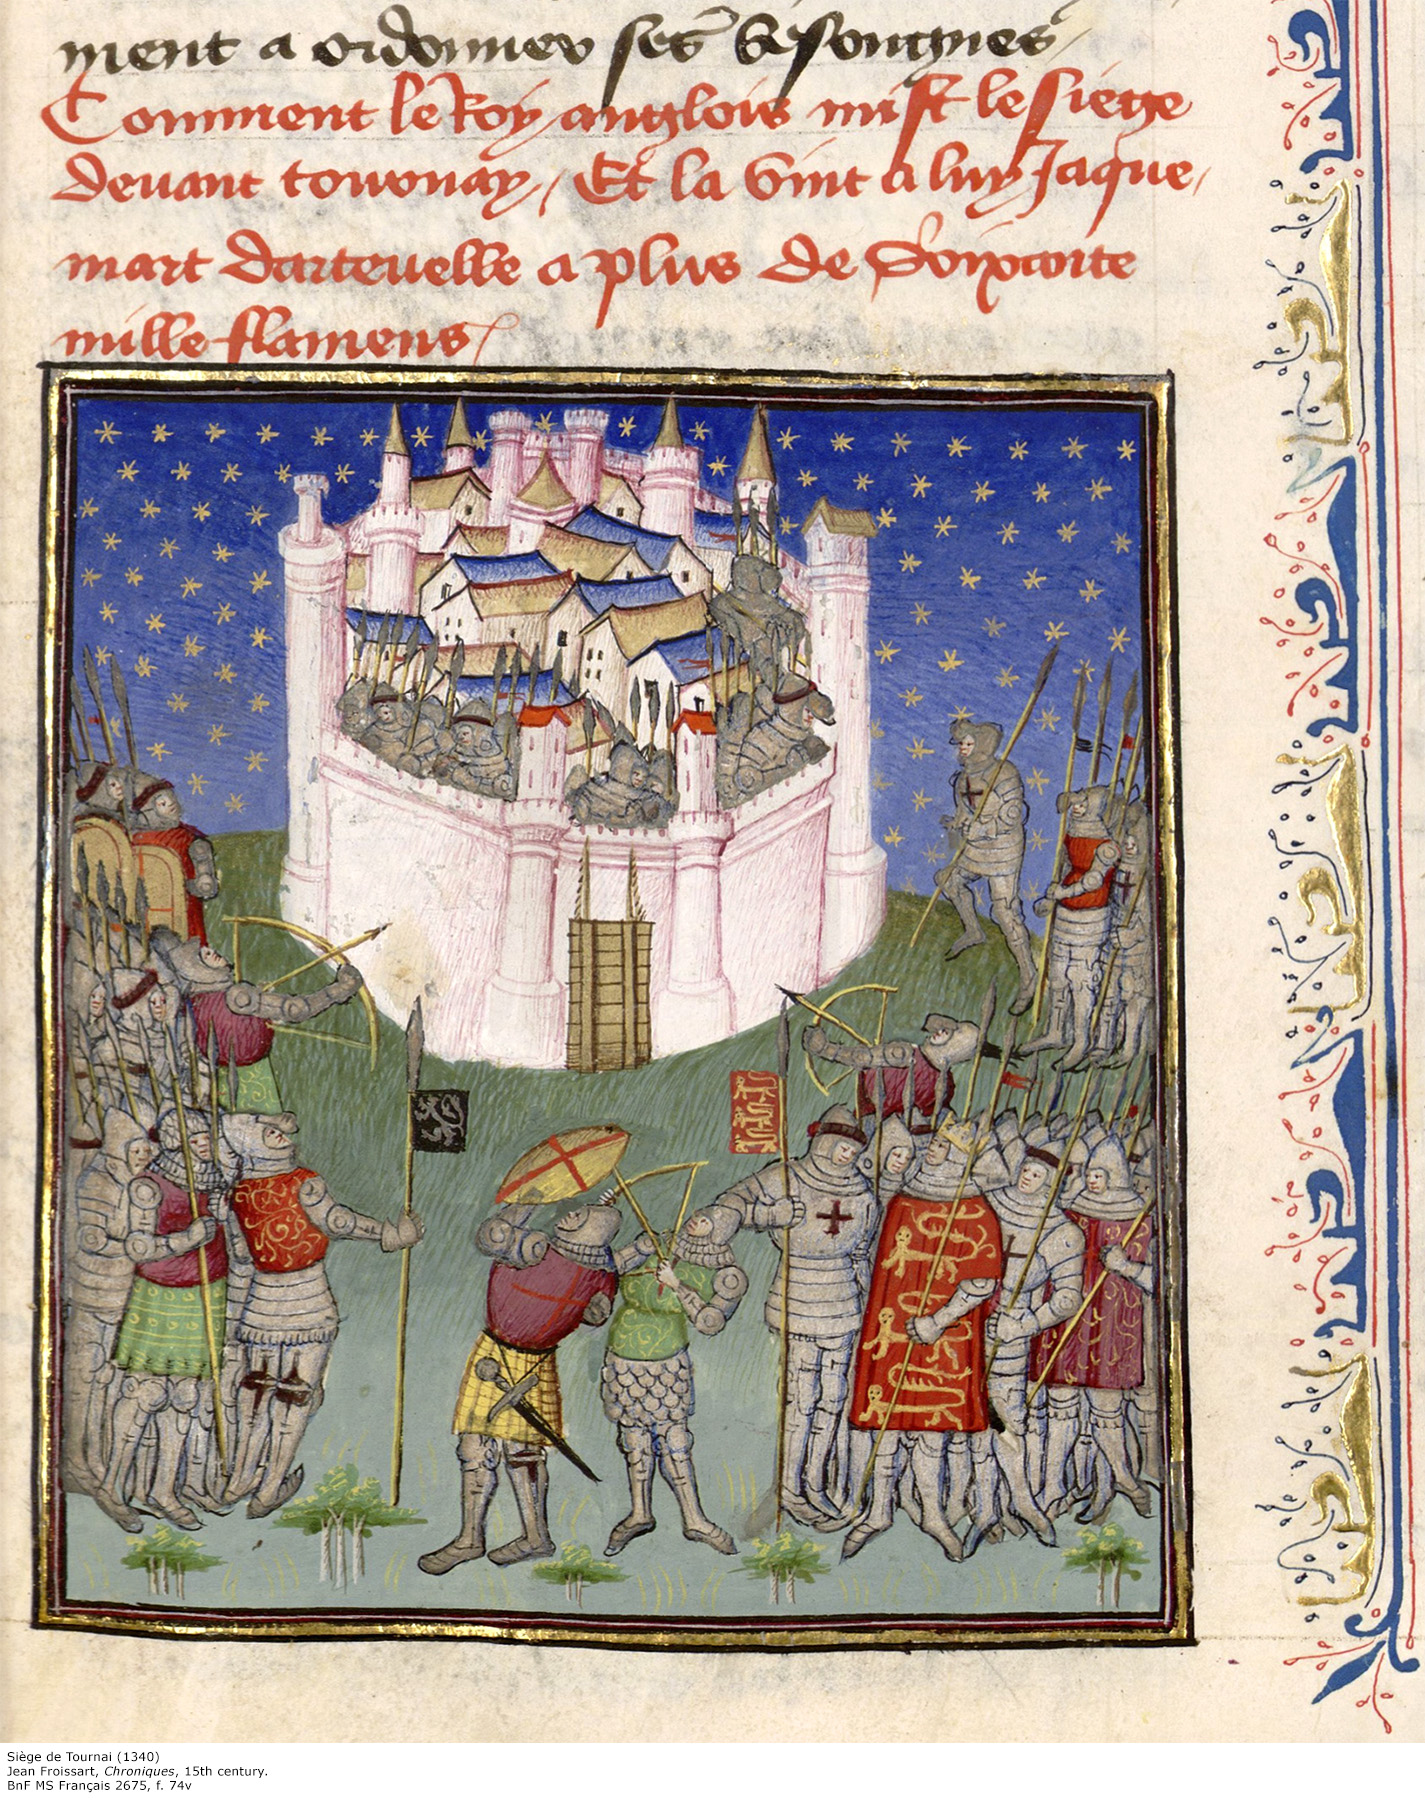 ment a ordonner ses besongnes
Comment le Roy anglois mist le siege
devant tournay, Et la vint a luy Jaque,
mart dartevelle a plus de soixante
mille flamens
Siège de Tournai (1340)
Jean Froissart, Chroniques, 15th century.
BnF MS Français 2675, f. 74v